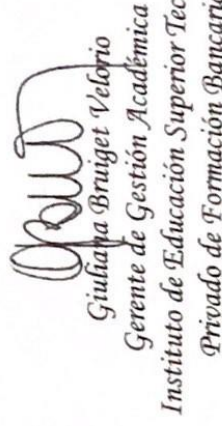 Giuliana Bruiget Velorio
Gerente de Gestión Académica
Instituto de Educación Superior Tec
Privado de Formación Bancari